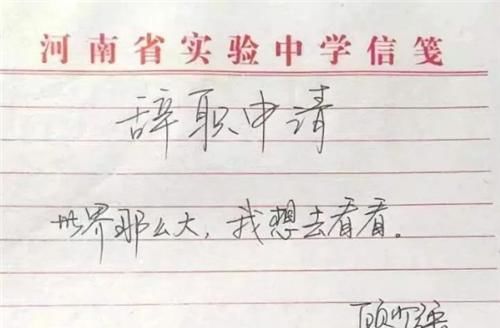 河南省实验中学信笺
辞职申请
世界那么大,我想去看看。
顾